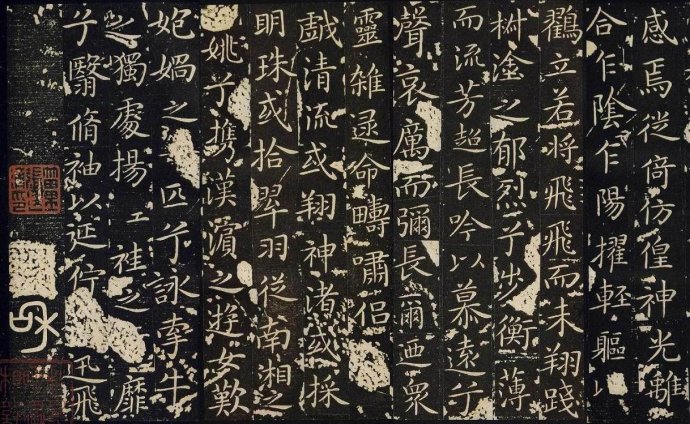 感焉徙倚仿偟神光離
合乍陰乍陽擢輕軀以
鸖立若將飛飛而未翔踐
椒塗之郁烈兮步衡薄
而流芳超長吟以慕遠兮
聲哀厲而彌長爾迺眾
靈雜遝命疇嘯侶
戲清流或翔神渚或採
明珠或拾翠羽從南湘之
姚兮携漢濱之遊女歎
媧之匹兮詠牽牛
之獨處揚袿之靡
兮翳脩袖以延佇迅飛